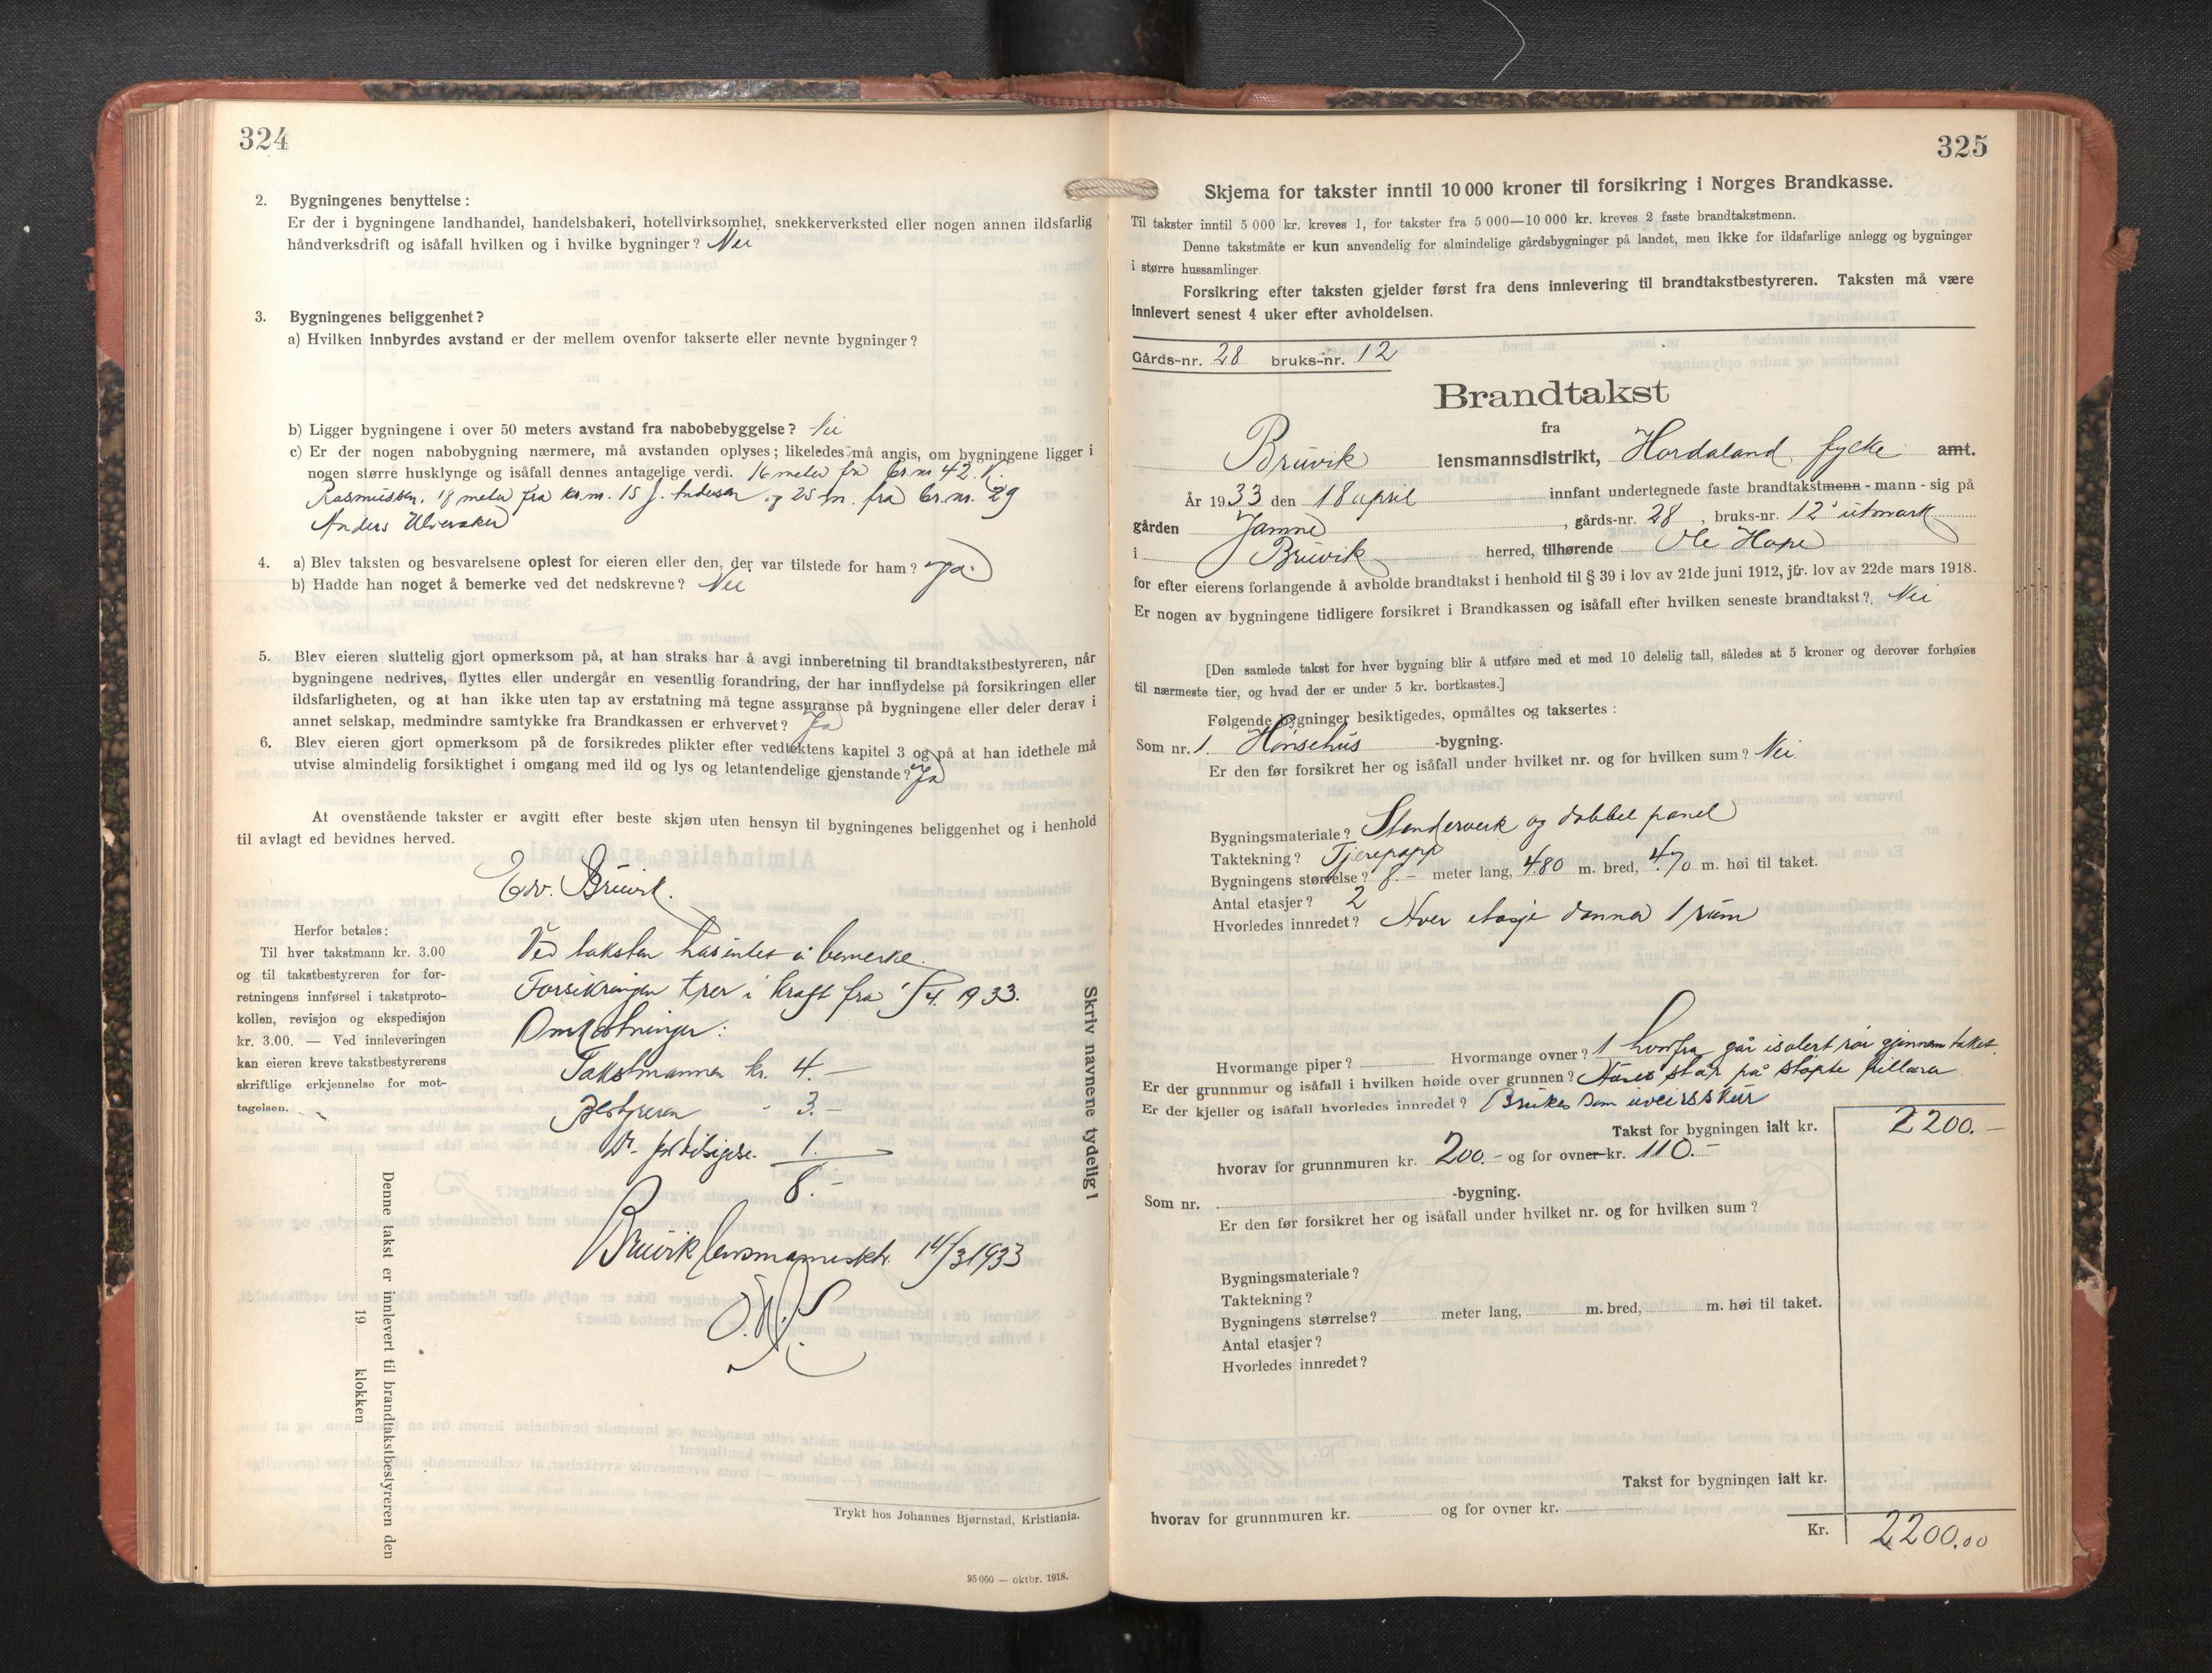 324
2. Bygningenes benyttelse:
Er der i bygningene landhandel, handelsbakeri, hotellvirksomhet, snekkerverksted eller nogen annen ildsfarlig
håndverksdrift og isåfall hvilken og i hvilke bygninger? Nei
3. Bygningenes beliggenhet?
a) Hvilken innbyrdes avstand er der mellem ovenfor takserte eller nevnte bygninger?
b) Ligger bygningene i over 50 meters avstand fra nabobebyggelse? Nei
c) Er der nogen nabobygning nærmere, må avstanden oplyses; likeledes må angis, om bygningene ligger i
nogen større husklynge og isåfall dennes antagelige verdi. 16 meter fra br.nr 42. K
Rasmussen, 18 meter fra br.nr. 15 J. Andersen og 25 m. fra br.nr. 29
Anders Ulvesaker
4. a) Blev taksten og besvarelsene oplest for eieren eller den, der var tilstede for ham? Ja.
b) Hadde han noget å bemerke ved det nedskrevne? Nei
5. Blev eieren sluttelig gjort opmerksom på, at han straks har å avgi innberetning til brandtakstbestyreren, når
bygningene nedrives, flyttes eller undergår en vesentlig forandring, der har innflydelse på forsikringen eller
ildsfarligheten, og at han ikke uten tap av erstatning må tegne assuranse på bygningene eller deler derav i
annet selskap, medmindre samtykke fra Brandkassen er erhvervet? Ja
6. Blev eieren gjort opmerksom på de forsikredes plikter efter vedtektens kapitel 3 og på at han idethele må
utvise almindelig forsiktighet i omgang med ild og lys og letantendelige gjenstande? Ja
At ovenstående takster er avgitt efter beste skjøn uten hensyn til bygningenes beliggenhet og i henhold
til avlagt ed bevidnes herved.
Edv. Bruvik.
Herfor betales:
Til hver takstmann kr. 3.00
og til takstbestyreren for for-
retningens innførsel i takstproto-
kollen, revisjon og ekspedisjon
kr. 3.00. — Ved innleveringen
kan eieren kreve takstbestyrerens
skriftlige erkjennelse for mot-
tagelsen.
Ved taksten has intet å bemerke.
Forsikringen trer i kraft fra 1/4. 1933.
Omkostninger:
Takstmannen kr. 4.—
Bestyreren - 3.—
1.
8.-
Bruvik lensmannsktr. 14/3 1933
Skriv navnene tydelig!
Denne takst er innlevert til brandtakstbestyreren den
19 klokken
Trykt hos Johannes Bjørnstad, Kristiania.
95 000 — oktbr. 1918.
325
Skjema for takster inntil 10 000 kroner til forsikring i Norges Brandkasse.
Til takster inntil 5 000 kr. kreves 1, for takster fra 5 000—10 000 kr. kreves 2 faste brandtakstmenn.
Denne takstmåte er kun anvendelig for almindelige gårdsbygninger på landet, men ikke for ildsfarlige anlegg og bygninger
i større hussamlinger.
Forsikring efter taksten gjelder først fra dens innlevering til brandtakstbestyreren. Taksten må være
innlevert senest 4 uker efter avholdelsen.
Gårds-nr. 28 bruks-nr. 12
Brandtakst
fra
Bruvik lensmannsdistrikt, Hordaland fylke amt.
År 1933 den 18 april innfant undertegnede faste brandtakstmenn - mann - sig på
gården Jamne, gårds-nr. 28, bruks-nr. 12 utmark
i Bruvik herred, tilhørende Ole Hope
for efter eierens forlangende å avholde brandtakst i henhold til § 39 i lov av 21de juni 1912, jfr. lov av 22de mars 1918.
Er nogen av bygningene tidligere forsikret i Brandkassen og isåfall efter hvilken seneste brandtakst? Nei
[Den samlede takst for hver bygning blir å utføre med et med 10 delelig tall, således at 5 kroner og derover forhøies
til nærmeste tier, og hvad der er under 5 kr. bortkastes.]
Følgende bygninger besiktigedes, opmåltes og taksertes:
Som nr. 1. Hønsehus -bygning.
Er den før forsikret her og isåfall under hvilket nr. og for hvilken sum? Nei.
Bygningsmateriale? Stenderverk og dobbel panel
Taktekning? Tjærepapp
Bygningens størrelse? 8.- meter lang, 4.80 m. bred, 4.70 m. høi til taket.
Antal etasjer? 2
Hvorledes innredet? Hver etasje danner 1 rum
Hvormange piper? Hvormange ovner? 1 hvorfra går isolert rør gjennem taket.
Er der grunnmur og isåfall i hvilken høide over grunnen? Huset står på støpte pillarer
Er der kjeller og isåfall hvorledes innredet? Brukes som uveirsskur
Takst for bygningen ialt kr. 2200.—
hvorav for grunnmuren kr. 200.- og for ovner kr. 110.-
Som nr. -bygning.
Er den før forsikret her og isåfall under hvilket nr. og for hvilken sum?
Bygningsmateriale?
Taktekning?
Bygningens størrelse? meter lang, m. bred, m. høi til taket.
Antal etasjer?
Hvorledes innredet?
Takst for bygningen ialt kr.
hvorav for grunnmuren kr. og for ovner kr.
Kr. 2200.00